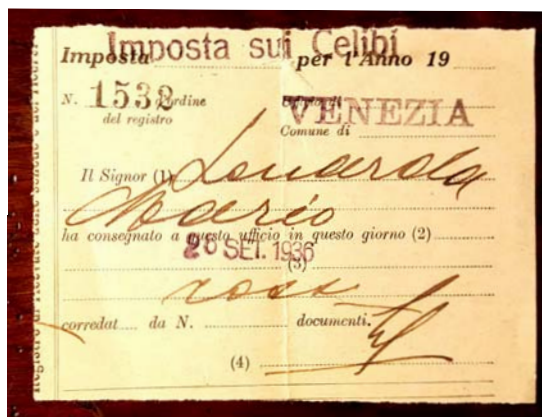 Imposta sui Celibi
Imposta per l'Anno 19
N. 1532 d'ordine
del registro
VENEZIA
Comune di
Il Signor (1)
Mario
ha consegnato a questo ufficio in questo giorno (2)
26 SET. 1936
(3)
corredat da N. documenti.
(4)